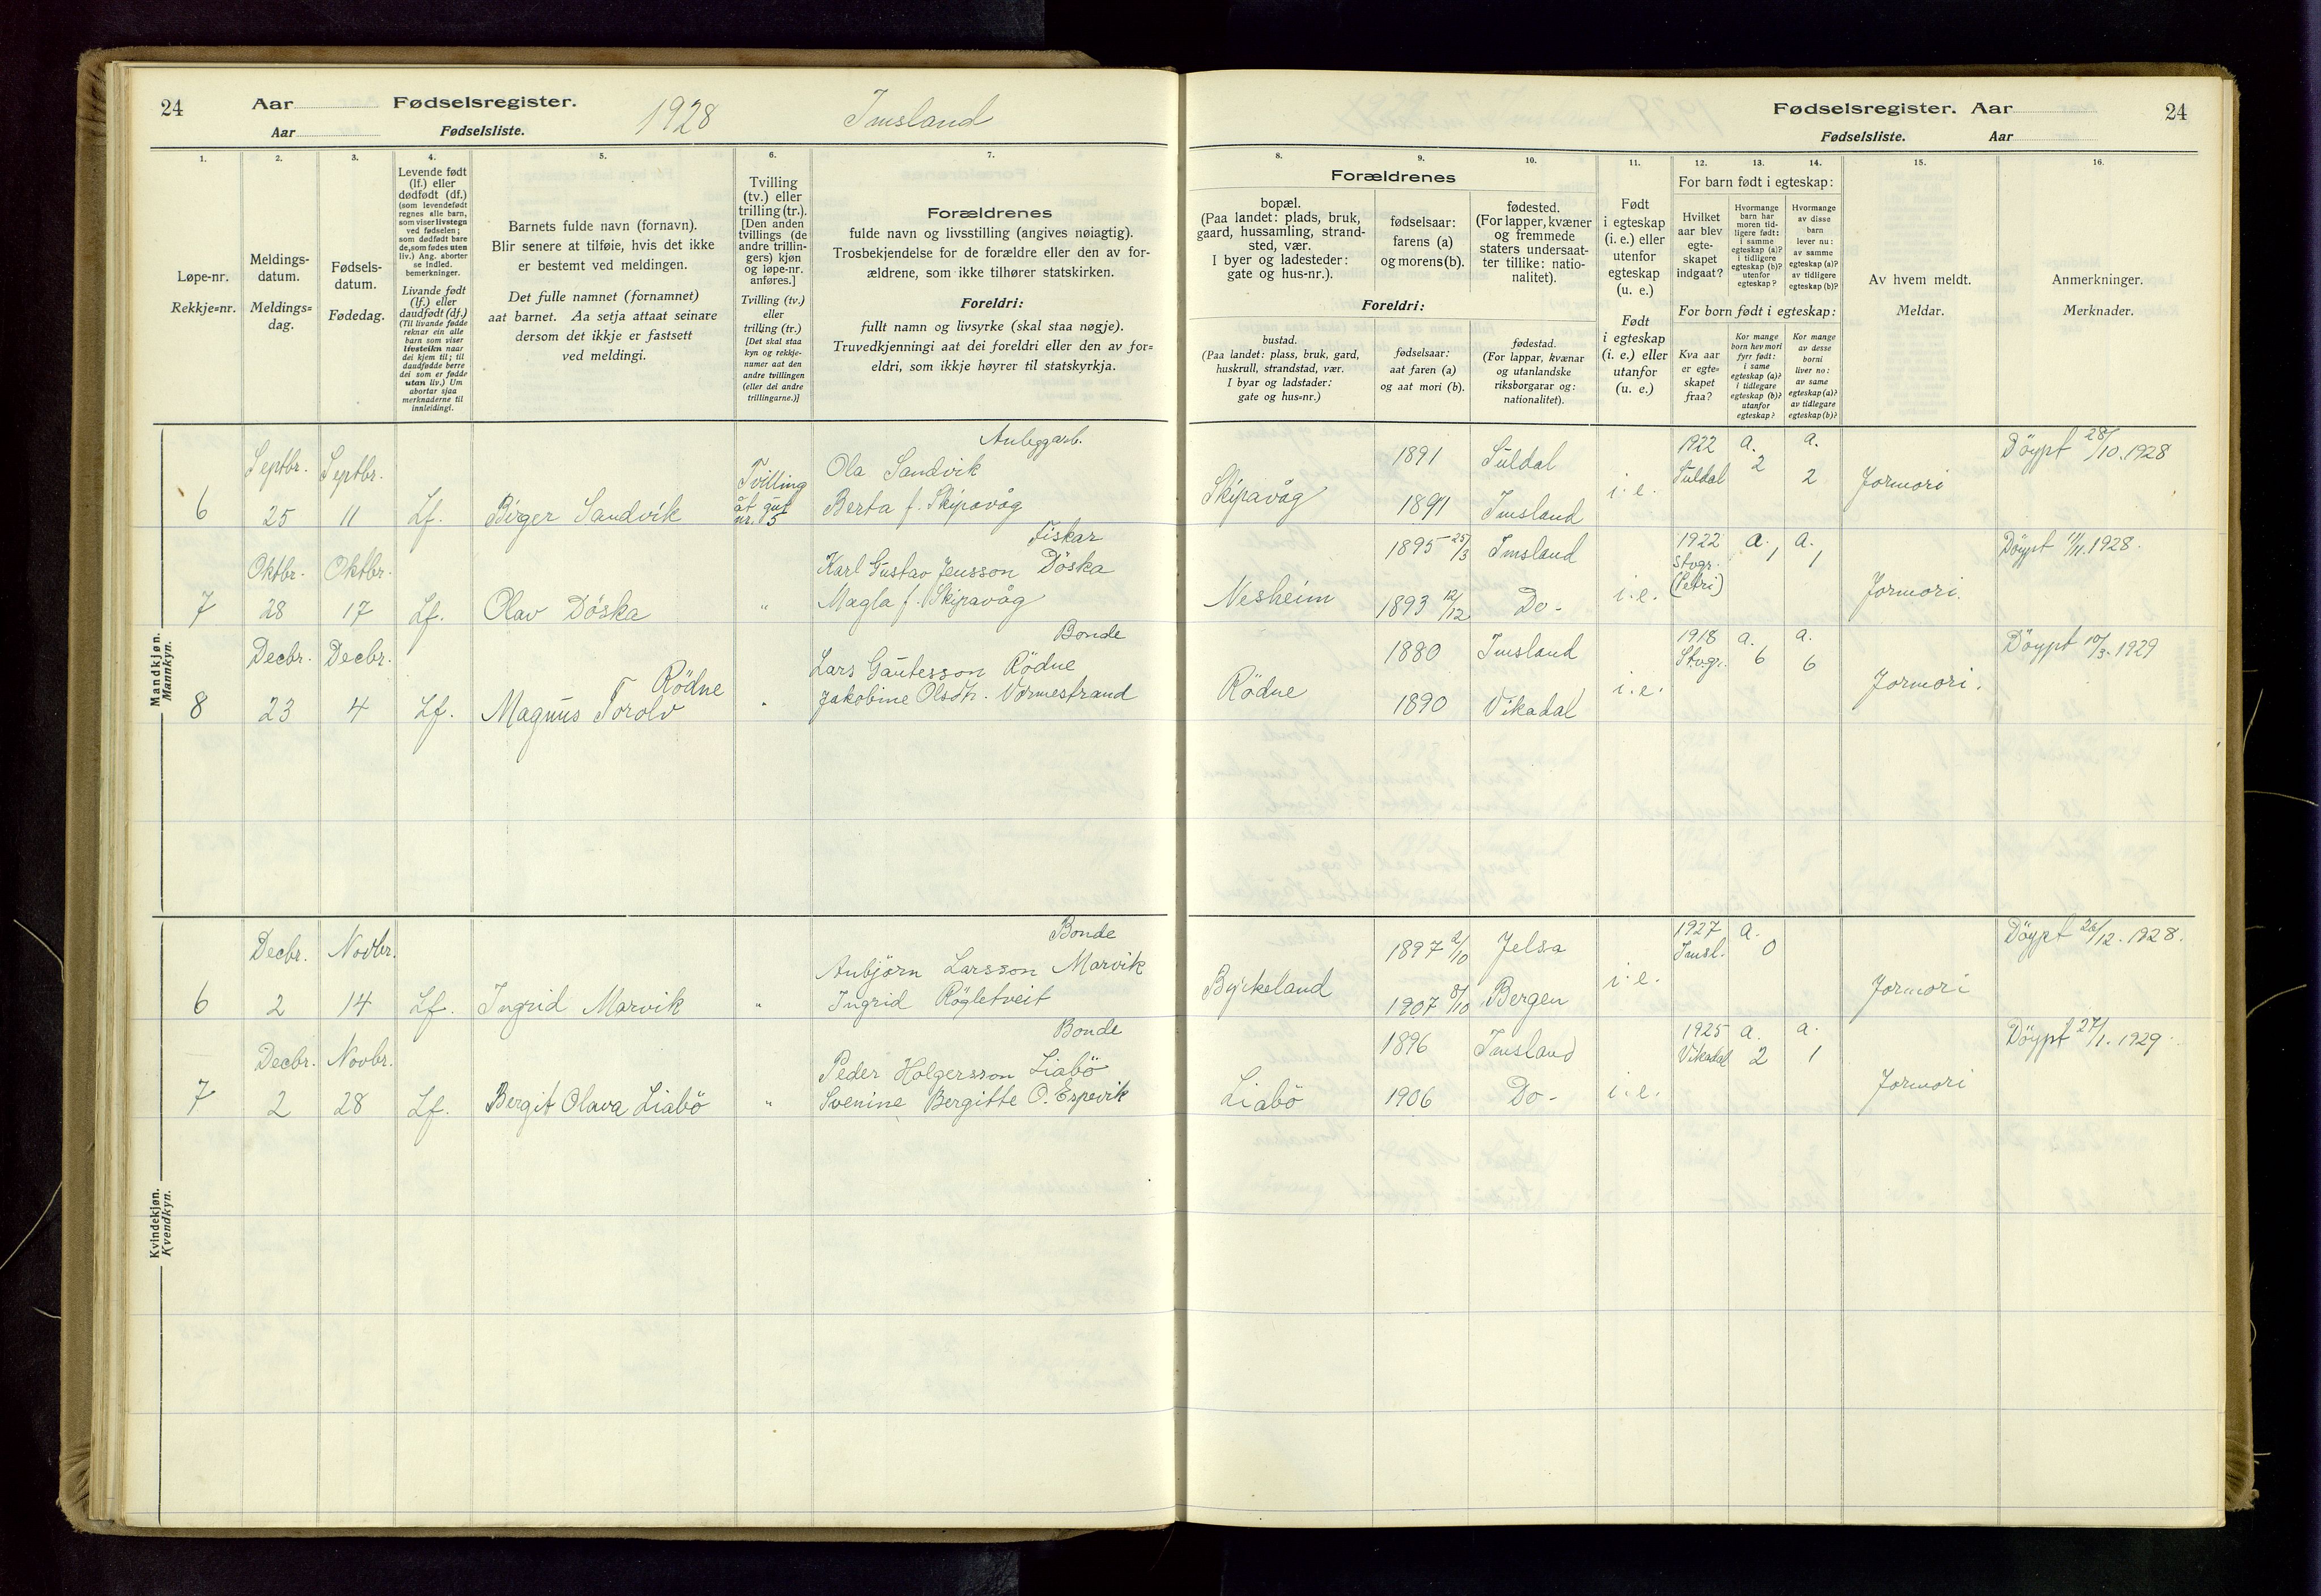 24 Aar Fødselsregister. 1928 Imsland
Aar Fødselsliste.
Fødselsregister. Aar 24
Fødselsliste. Aar
1. 2. 3. 4. 5. 6. 7.
Løpe-nr.
Rekkje=nr.
Meldings-
datum.
Meldings=
dag.
Fødsels-
datum.
Fødedag.
Levende født
(lf.) eller
dødfødt (df.)
(som levendefødt
regnes alle barn,
som viser livstegn
ved fødselen;
som dødfødt bare
de, som fødes uten
liv.) Ang. aborter
se indled.
bemerkninger.
Livande født
(lf.) eller
daudfødt (df.)
(Til livande fødde
reknar ein alle
barn som viser
livsteikn naar
dei kjem til; til
daudfødde berre
dei som er fødde
utan liv.) Um
abortar sjaa
merknaderne til
innleidingi.
Barnets fulde navn (fornavn).
Blir senere at tilføie, hvis det ikke
er bestemt ved meldingen.
Det fulle namnet (fornamnet)
aat barnet. Aa setja attaat seinare
dersom det ikkje er fastsett
ved meldingi.
Tvilling
(tv.) eller
trilling (tr.).
[Den anden
tvillings (de
andre trillin-
gers) kjøn
og løpe-nr.
anføres.]
Tvilling (tv.)
eller
trilling (tr.)
[Det skal staa
kyn og rekkje-
numer aat den
andre tvillingen
(eller dei andre
trillingarne.)]
Forældrenes
fulde navn og livsstilling (angives nøiagtig).
Trosbekjendelse for de forældre eller den av for-
ældrene, som ikke tilhører statskirken.
Foreldri:
fullt namn og livsyrke (skal staa nøgje).
Truvedkjenningi aat dei foreldri eller den av for=
eldri, som ikkje høyrer til statskyrkja.
8. 9. 10. 11. 12. 13. 14. 15. 16.
Forældrenes
bopæl.
(Paa landet: plads, bruk,
gaard, hussamling, strand-
sted, vær.
I byer og ladesteder:
gate og hus-nr.).
fødselsaar:
farens (a)
og morens (b).
fødested.
(For lapper, kvæner
og fremmede
staters undersaat-
ter tillike: natio-
nalitet).
Foreldri:
bustad.
(Paa landet: plass, bruk, gard,
huskrull, strandstad, vær.
I byar og ladstader:
gate og hus=nr.)
fødselsaar:
aat faren (a)
og aat mori (b).
fødestad.
(For lappar, kvænar
og utanlandske
riksborgarar og:
nationalitet).
Født
i egteskap
(i. e.) eller
utenfor
egteskap
(u. e.)
Født
i egteskap
(i. e.) eller
utanfor
(u. e.)
For barn født i egteskap:
Hvilket
aar blev
egte-
skapet
indgaat?
Hvormange
barn har
moren tid-
ligere født:
i samme
egteskap (a)?
i tidligere
egteskap (b)?
utenfor
egteskap?
Hvormange
av disse
barn
lever nu:
av samme
egteskap (a)?
av tidligere
egteskap (b)?
For born født i egteskap:
Kva aar
er egte=
skapet
fraa?
Kor mange
born hev mori
fyrr født:
i same
egteskap (a)?
i tidlegare
egteskap (b)?
utanfor
egteskap?
Kor mange
av desse
borni
liver no:
av same
egteskap (a)?
av tidlegare
egteskap (b)?
Av hvem meldt.
Meldar.
Anmerkninger.
Merknader.
Mandkjøn.
Mannkyn.
Anleggarb.
Septbr. Septbr. Tvilling Ola Sandvik 1891 Suldal 1922 a. a. Döypt 28/10.1928
6 25 11 Lf. Birger Sandvik åt gut nr. 5 Berta f. Skipavåg Skipavåg 1891 Imsland i.e. Suldal 2 2 Jormori
Fiskar
Oktbr. Oktbr. Karl Gustav Jensson Döska 1895 25/3 Imsland 1922 a. 1 a. 1 Döypt 11/11.1928.
7 28 17 Lf. Olav Döska " Magla f. Skipavåg Nesheim 1893 12/12 Do- i.e. Stvgr. (Petri) Jormori.
Bonde
Decbr. Decbr. Rödne Lars Gautesson Rödne 1880 Imsland 1918 a. a. Döypt 10/3.1929
8 23 4 Lf. Magnus Torolv " Jakobine Olsdtr. Vormestrand Rödne 1890 Vikadal i.e. Stvgr. 6 6 Jormori.
Kvindekjøn.
Kvendkyn.
Bonde
Decbr. Novbr. Anbjörn Larsson Marvik 1897 2/10 Jelsa 1927 a. Döypt 26/12.1928.
6 2 14 Lf. Ingrid Marvik " Ingrid Rögletveit Byrkeland 1907 8/10 Bergen i.e. Imsl. 0 Jormori
Bonde
Decbr. Novbr. Peder Holgersson Liabö 1896 Imsland 1925 a. a. Döypt 27/1.1929.
7 2 28 Lf. Bergit Olava Liabö " Svenine Bergitte O. Espevik Liabö 1906 Do- i.e. Vikadal 2 1 Jormori